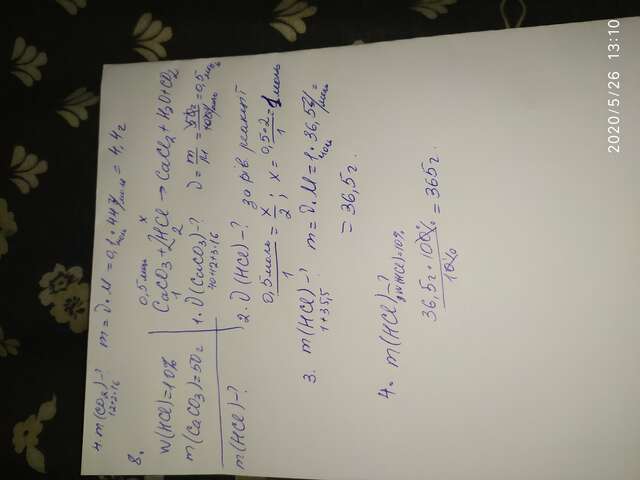 4. m(CO₂)-? m = ν·M = 0,1 моль · 44 г/моль = 4,4 г
12+2·16
8.
W(HCl)=10%
m(CaCO₃)=50 г
m(HCl)-?
0,5 моль x
CaCO₃ + 2HCl → CaCl₂ + H₂O + CO₂
1 2
1. ν(CaCO₃)-? ν = m/M = 50 г/100 г/моль = 0,5 моль
40+12+3·16
2. ν(HCl)-? за рів. реакції
0,5 моль/1 = x/2 ; x = 0,5·2/1 = 1 моль
3. m(HCl)-? m = ν·M = 1 моль · 36,5 г/моль =
1+35,5
= 36,5 г.
4. m(HCl)-?
(w(HCl)=10%
36,5 г · 100%/10% = 365 г.
2020/5/26 13:10